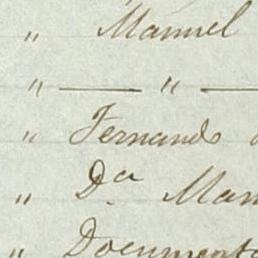 " Manuel
" — " —
" Fernando
" Dª Man
" Documento